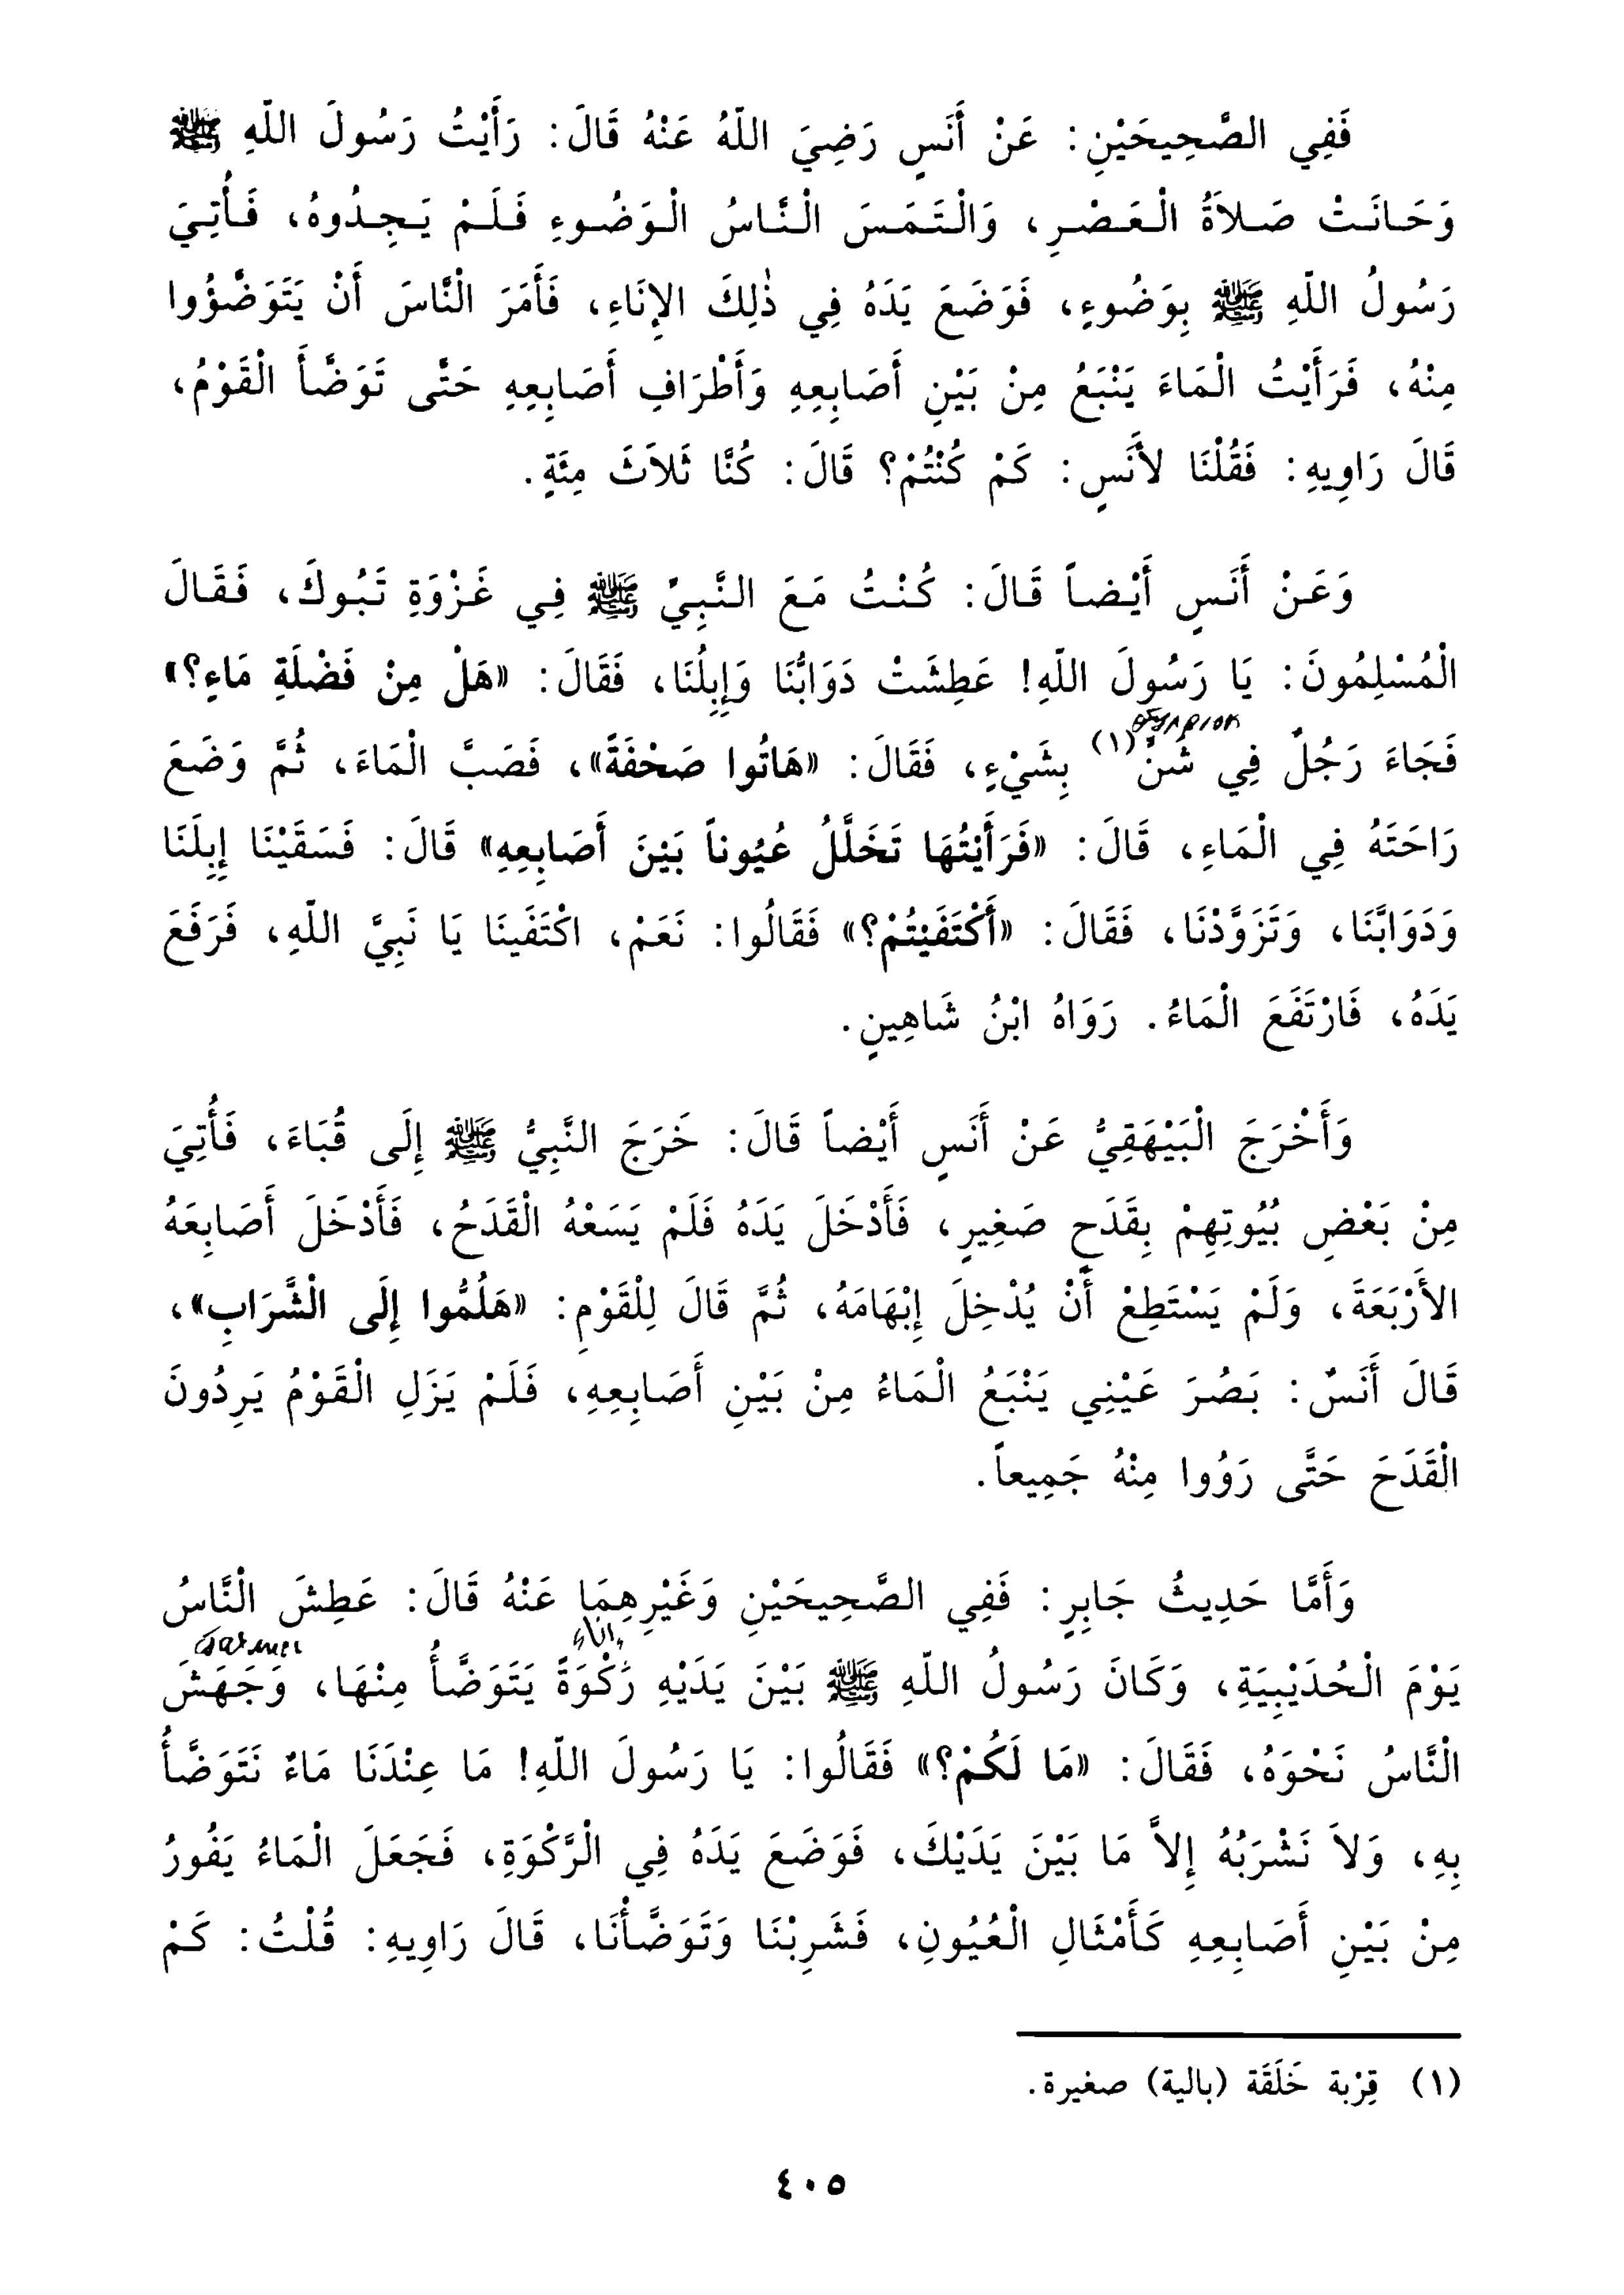 فَفِي الصَّحِيحَيْنِ: عَنْ أَنَسٍ رَضِيَ اللّهُ عَنْهُ قَالَ: رَأَيْتُ رَسُولَ اللّهِ ﷺ
وَحَانَتْ صَلاَةُ الْعَصْرِ، وَالْتَمَسَ الْنَّاسُ الْوَضُوءِ فَلَمْ يَجِدُوهُ، فَأُتِيَ
رَسُولُ اللّهِ ﷺ بِوَضُوءٍ، فَوَضَعَ يَدَهُ فِي ذٰلِكَ الإِنَاءِ، فَأَمَرَ الْنَّاسَ أَنْ يَتَوَضَّؤُوا
مِنْهُ، فَرَأَيْتُ الْمَاءَ يَنْبَعُ مِنْ بَيْنِ أَصَابِعِهِ وَأَطْرَافِ أَصَابِعِهِ حَتَّى تَوَضَّأَ الْقَوْمُ،
قَالَ رَاوِيهِ: فَقُلْنَا لأَنَسٍ: كَمْ كُنْتُمْ؟ قَالَ: كُنَّا ثَلاَثَ مِئَةٍ.
وَعَنْ أَنَسٍ أَيْضاً قَالَ: كُنْتُ مَعَ النَّبِيِّ ﷺ فِي غَزْوَةِ تَبُوكَ، فَقَالَ
الْمُسْلِمُونَ: يَا رَسُولَ اللّهِ! عَطِشَتْ دَوَابُّنَا وَإِبِلُنَا، فَقَالَ: «هَلْ مِنْ فَضْلَةِ مَاءٍ؟»
فَجَاءَ رَجُلٌ فِي شَنٍّ(١) بِشَيْءٍ، فَقَالَ: «هَاتُوا صَحْفَةً»، فَصَبَّ الْمَاءَ، ثُمَّ وَضَعَ
رَاحَتَهُ فِي الْمَاءِ، قَالَ: «فَرَأَيْتُهَا تَخَلَّلُ عُيُوناً بَيْنَ أَصَابِعِهِ» قَالَ: فَسَقَيْنَا إِبِلَنَا
وَدَوَابَّنَا، وَتَزَوَّدْنَا، فَقَالَ: «أَكْتَفَيْتُمْ؟» فَقَالُوا: نَعَمْ، اكْتَفَينَا يَا نَبِيَّ اللّهِ، فَرَفَعَ
يَدَهُ، فَارْتَفَعَ الْمَاءُ. رَوَاهُ ابْنُ شَاهِينٍ.
وَأَخْرَجَ الْبَيْهَقِيُّ عَنْ أَنَسٍ أَيْضاً قَالَ: خَرَجَ النَّبِيُّ ﷺ إِلَى قُبَاءَ، فَأُتِيَ
مِنْ بَعْضِ بُيُوتِهِمْ بِقَدَحٍ صَغِيرٍ، فَأَدْخَلَ يَدَهُ فَلَمْ يَسَعْهُ الْقَدَحُ، فَأَدْخَلَ أَصَابِعَهُ
الأَرْبَعَةَ، وَلَمْ يَسْتَطِعْ أَنْ يُدْخِلَ إِبْهَامَهُ، ثُمَّ قَالَ لِلْقَوْمِ: «هَلُمُّوا إِلَى الْشَّرَابِ»،
قَالَ أَنَسٌ: بَصُرَ عَيْنِي يَنْبَعُ الْمَاءُ مِنْ بَيْنِ أَصَابِعِهِ، فَلَمْ يَزَلِ الْقَوْمُ يَرِدُونَ
الْقَدَحَ حَتَّى رَوُوا مِنْهُ جَمِيعاً.
وَأَمَّا حَدِيثُ جَابِرٍ: فَفِي الصَّحِيحَيْنِ وَغَيْرِهِمَا عَنْهُ قَالَ: عَطِشَ الْنَّاسُ
يَوْمَ الْحُدَيْبِيَةِ، وَكَانَ رَسُولُ اللّهِ ﷺ بَيْنَ يَدَيْهِ رَكْوَةً يَتَوَضَّأُ مِنْهَا، وَجَهَشَ
الْنَّاسُ نَحْوَهُ، فَقَالَ: «مَا لَكُمْ؟» فَقَالُوا: يَا رَسُولَ اللّهِ! مَا عِنْدَنَا مَاءٌ نَتَوَضَّأُ
بِهِ، وَلاَ نَشْرَبُهُ إِلاَّ مَا بَيْنَ يَدَيْكَ، فَوَضَعَ يَدَهُ فِي الْرَّكْوَةِ، فَجَعَلَ الْمَاءُ يَفُورُ
مِنْ بَيْنِ أَصَابِعِهِ كَأَمْثَالِ الْعُيُونِ، فَشَرِبْنَا وَتَوَضَّأْنَا، قَالَ رَاوِيهِ: قُلْتُ: كَمْ
(١) قِرْبة خَلَقَة (بالية) صغيرة.
٤٠٥